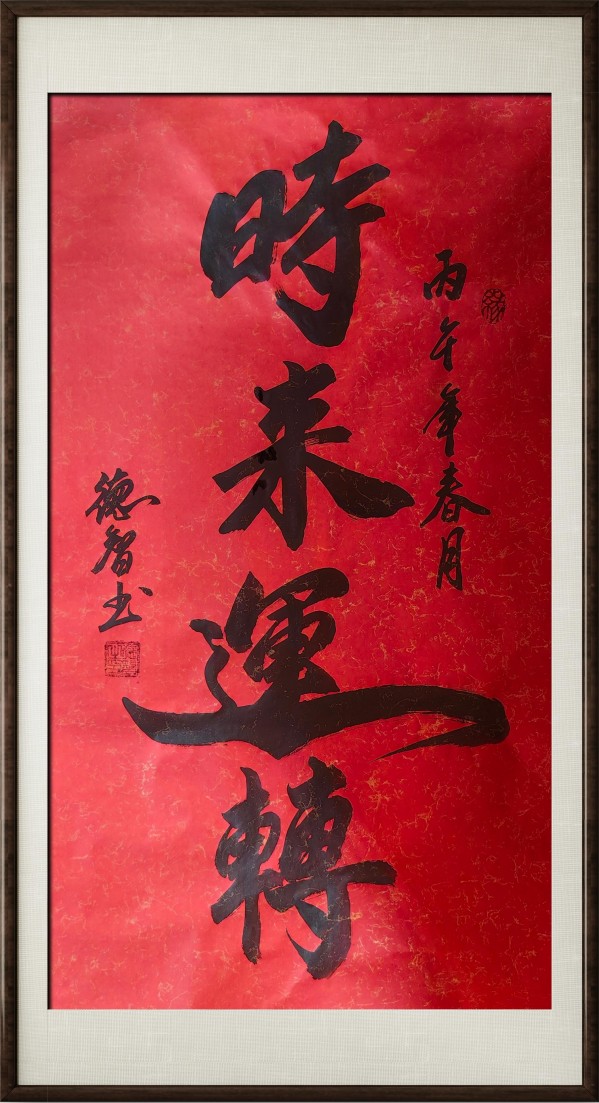 丙午年春月
時来運轉
德智书